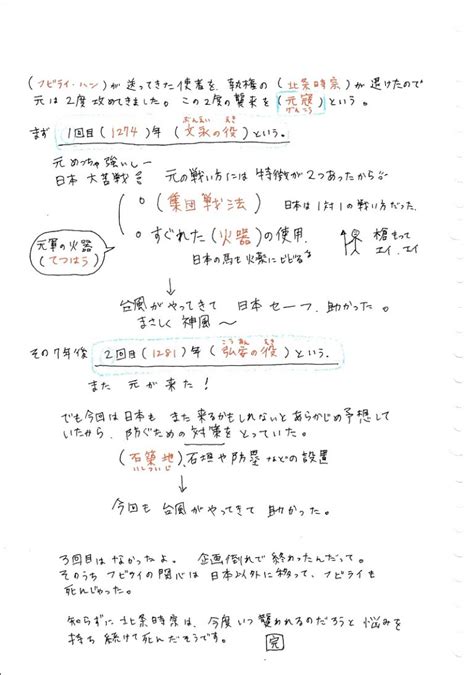 (フビライ・ハン)が送ってきた使者を、執権の(北条時宗)が退けたので
元は2度攻めてきました。この2度の襲来を(元寇)という。
げんこう
まず
1回目(1274)年(文永の役)という。
ぶんえい えき
元めっちゃ強いしー
日本 大苦戦
元の戦い方には 特徴が2つあったから
(集団戦法)
日本は1対1の戦い方だった。
すぐれた(火器)の使用.
元軍の火器
(てつはう)
日本の馬も火薬にビビる
槍もって
エイ、エイ
↓
台風がやってきて 日本 セーフ、助かった。
まさしく 神風〜
その7年後
2回目(1281)年(弘安の役)という.
こうあん えき
また 元が来た!
でも今回は日本も また来るかもしれないとあらかじめ予想して
いたから、防ぐための 対策を とっていた。
(石築地)、石垣や防塁などの設置
いしついじ
↓
今回も 台風がやってきて 助かった。
3回目はなかったよ。 企画倒れで終わったんだって。
そのうち フビライの関心は 日本以外に移って、フビライも
死んじゃった。
知らずに 北条時宗は、今度いつ襲われるのだろうと悩みを
持ち続けて死んだそうです。
完